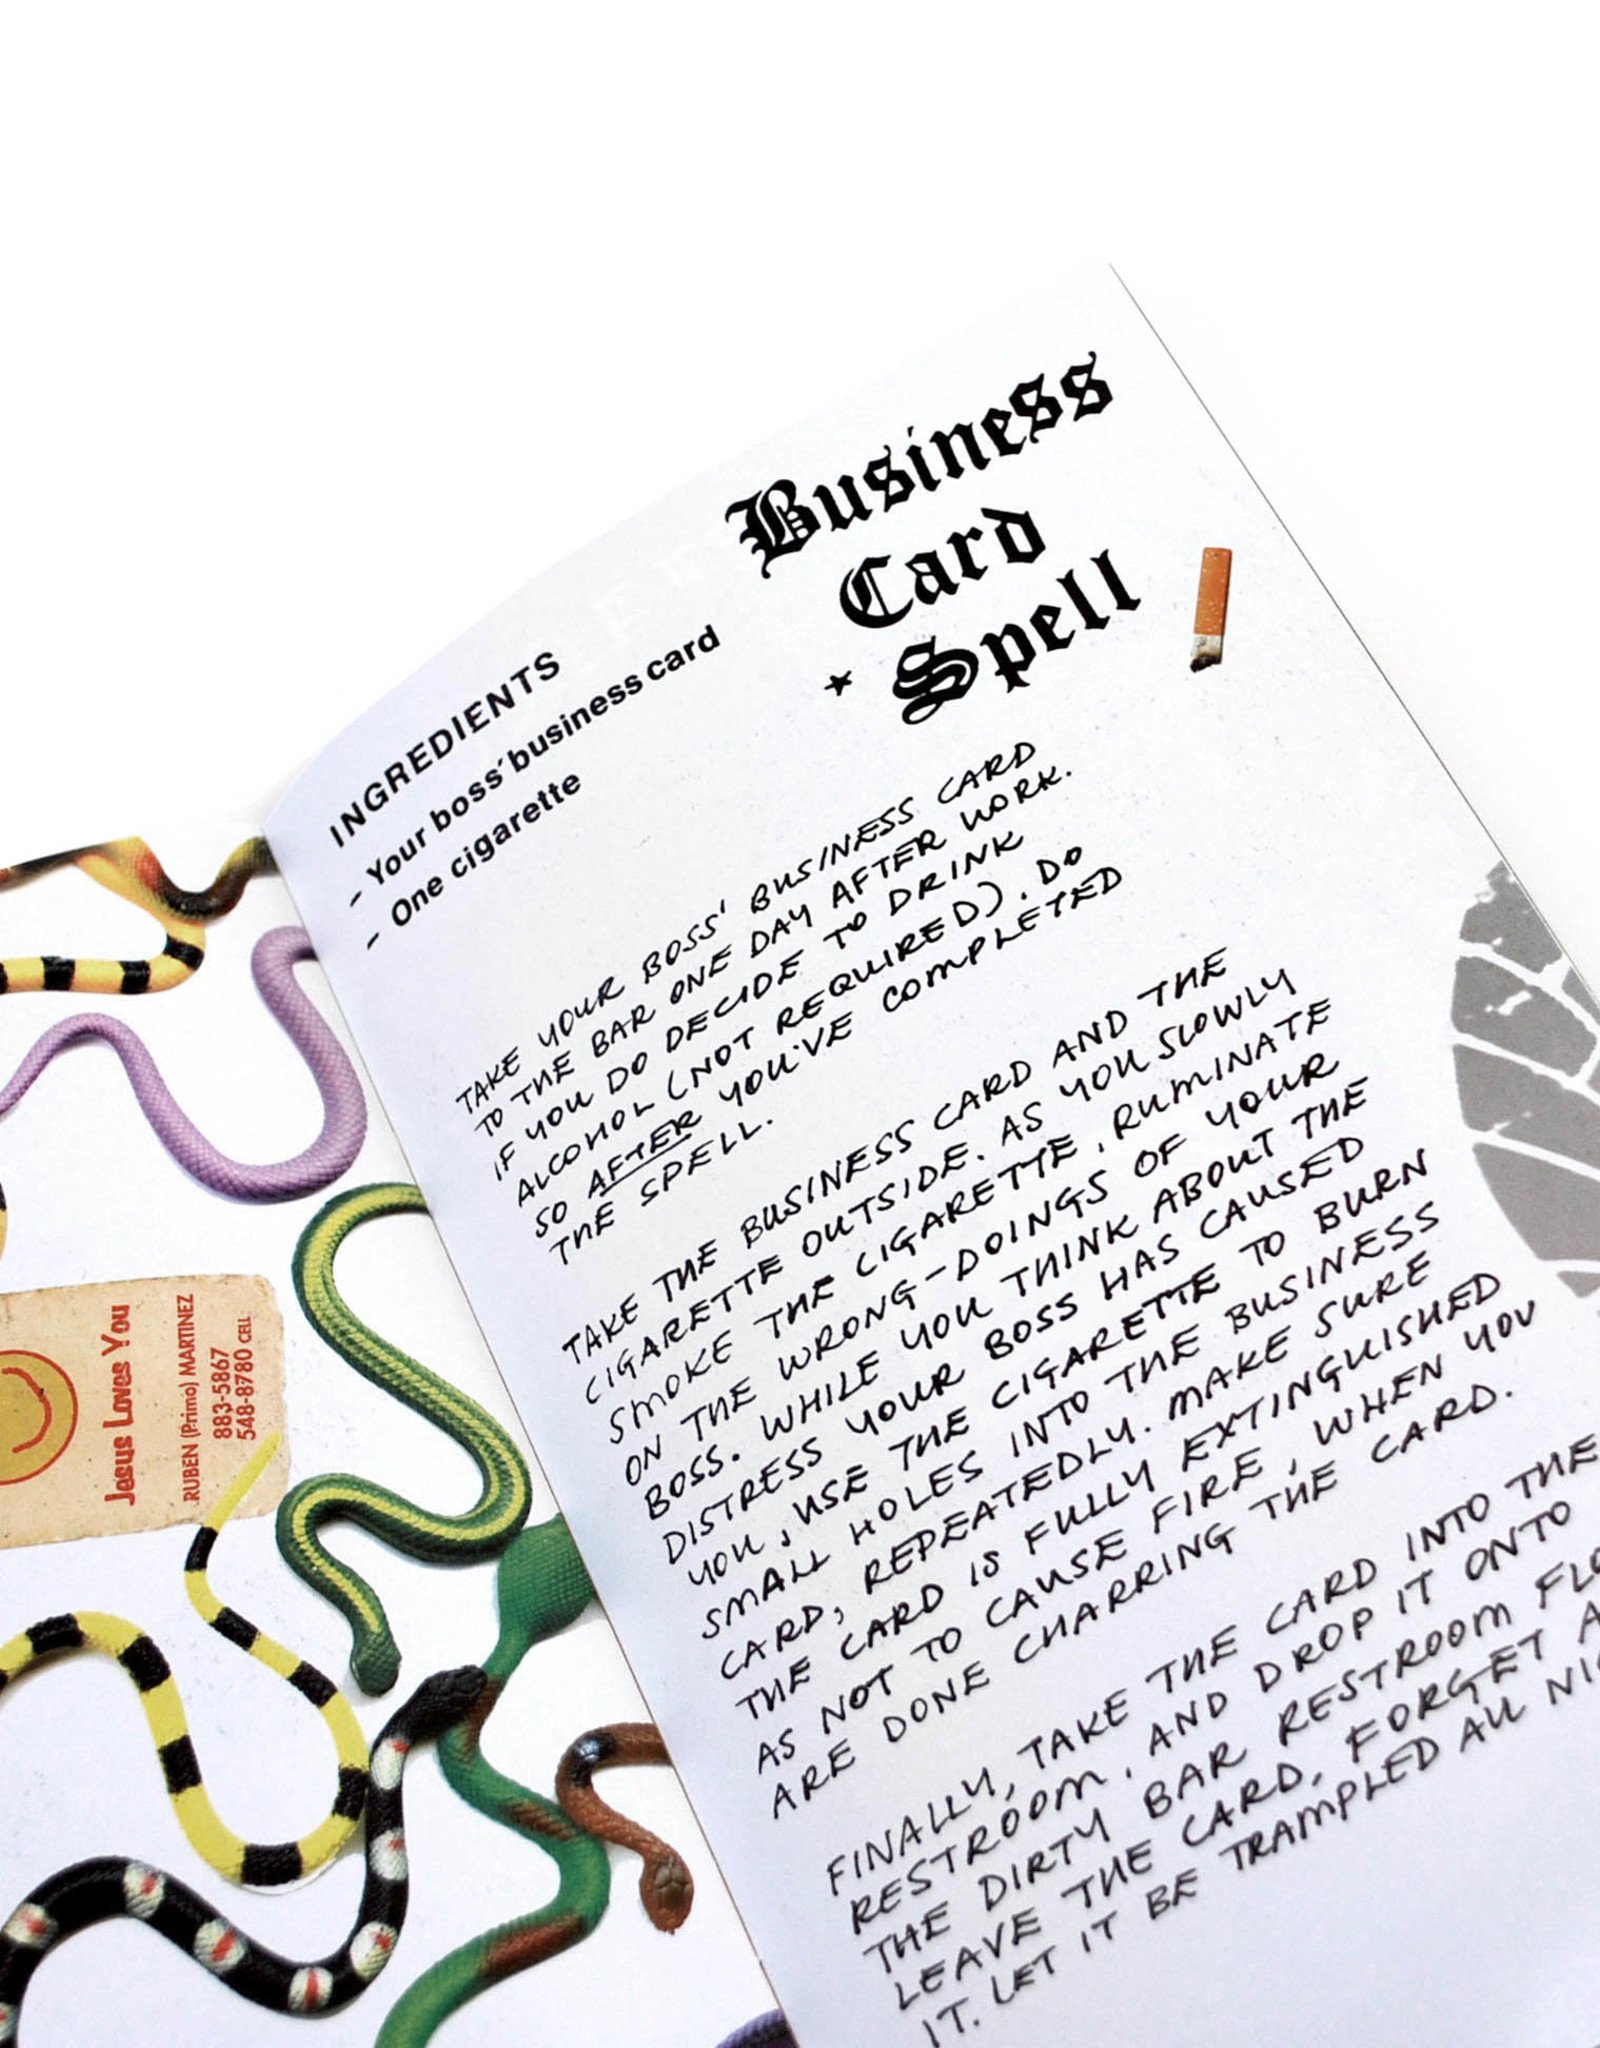 Jesus Loves You
RUBEN (Primo) MARTINEZ
883-5867
548-8780 CELL
INGREDIENTS
- Your boss' business card
- One cigarette
Business
Card
Spell
TAKE YOUR BOSS' BUSINESS CARD
TO THE BAR ONE DAY AFTER WORK.
IF YOU DO DECIDE TO DRINK
ALCOHOL (NOT REQUIRED). DO
SO AFTER YOU'VE COMPLETED
THE SPELL.
TAKE THE BUSINESS CARD AND THE
CIGARETTE OUTSIDE. AS YOU SLOWLY
SMOKE THE CIGARETTE, RUMINATE
ON THE WRONG-DOINGS OF YOUR
BOSS. WHILE YOU THINK ABOUT THE
DISTRESS YOUR BOSS HAS CAUSED
YOU, USE THE CIGARETTE TO BURN
SMALL HOLES INTO THE BUSINESS
CARD, REPEATEDLY. MAKE SURE
THE CARD IS FULLY EXTINGUISHED
AS NOT TO CAUSE FIRE, WHEN YOU
ARE DONE CHARRING THE CARD.
FINALLY, TAKE THE CARD INTO THE
RESTROOM, AND DROP IT ONTO
THE DIRTY BAR RESTROOM
LEAVE THE CARD. FORGET
IT. LET IT BE TRAMPLED ALL